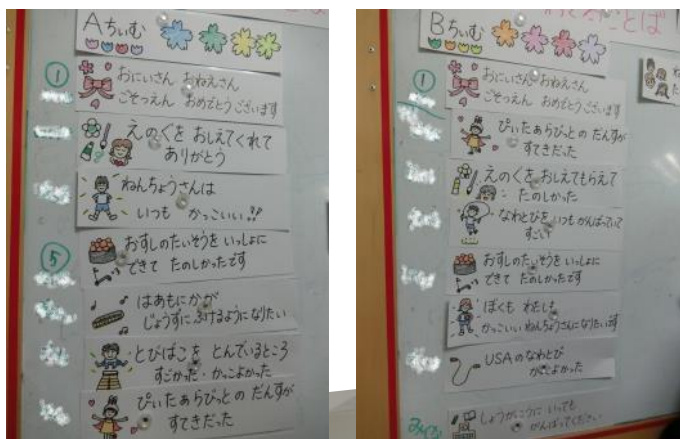 Aちぃむ
①
おにいさん おねえさん
ごそつえん おめでとうございます
えのぐを おしえてくれて
ありがとう
ねんちょうさんは
いつも かっこいい!!
⑤
おすしのたいそうを いっしょに
できて たのしかったです
はあもにかが
じょうずに ふけるようになりたい
とびばこを とんでいるところ
すごかった・かっこよかった
ぴぃたあらびっとの だんすが
すてきだった
Bちぃむ
ことば
①
おにいさん おねえさん
ごそつえん おめでとうございます
ぴぃたあらびっとの だんすが
すてきだった
えのぐを おしえてもらえて
たのしかった
なわとびを いつも がんばっていて
すごい
おすしのたいそうを いっしょに
できて たのしかったです
ぼくも わたしも
かっこいい ねんちょうさんに なりたいです
USAの なわとび
かっこよかった
しょうがっこうに いっても
がんばってください